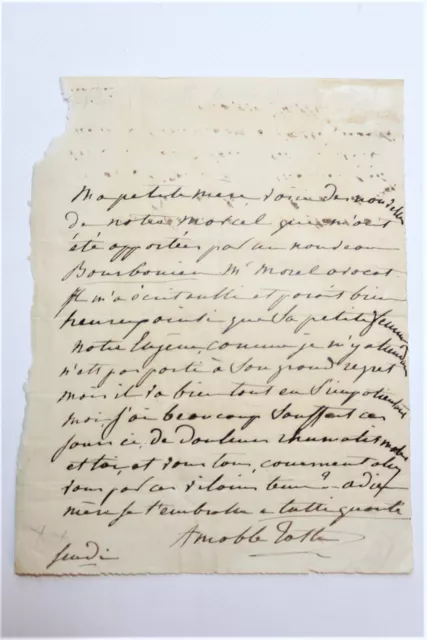 Ma petite mère voici des nouvelles
de notre Marcel qui m'ont
été apportées par un nouveau
Bourbonien Mr Morel avocat
Il m'a écrit et paraît bien
heureux que sa petite femme
notre Eugène, comme je m'y attendais
n'est pas parti à son grand regret
mais il va bien tout en s'impatientant
moi j'ai beaucoup souffert ces
jours ci de douleurs rhumatismales
et toi, et vous tous, comment allez
vous par ces vilains temps adieu
mère je t'embrasse e tutti quanti
Amable Tastu
Jeudi